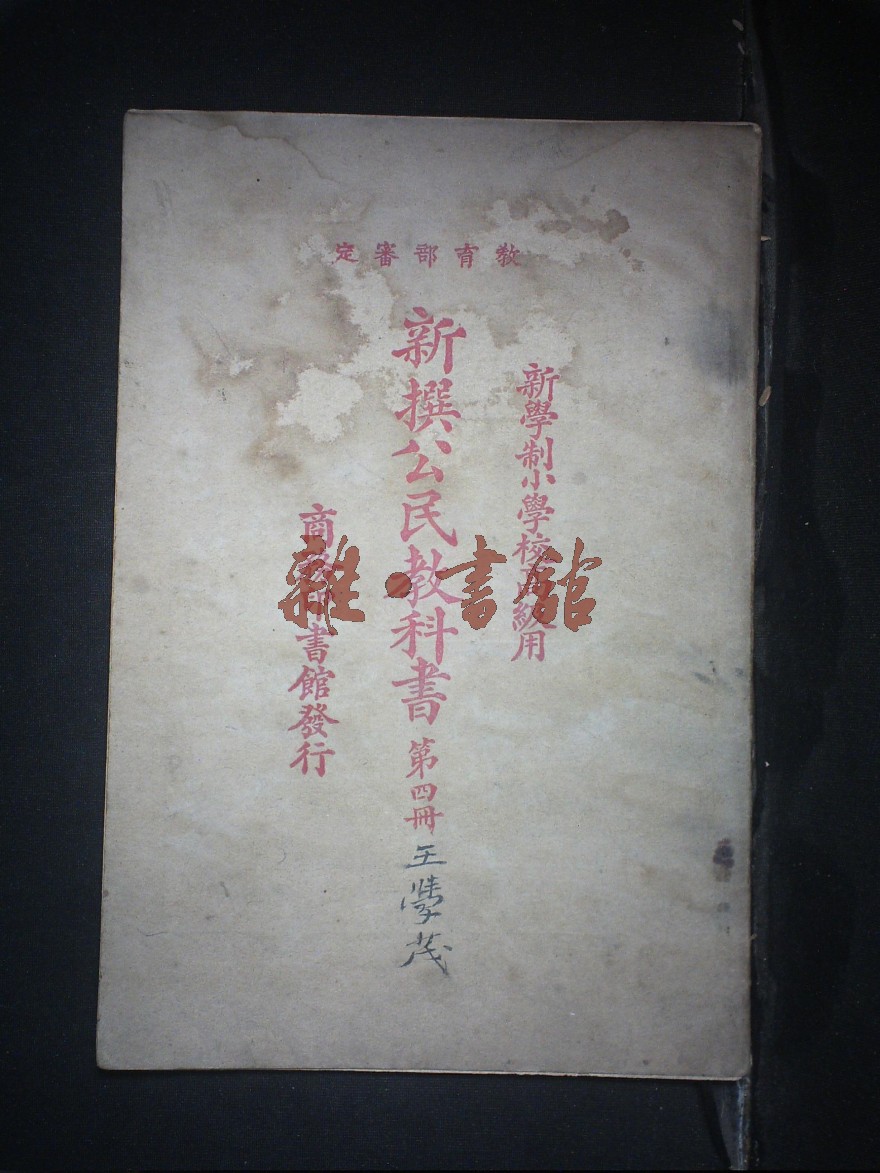 教育部審定
新學制小學校高級用
新撰公民教科書 第四冊
王學茂
商務印書館發行
雜·書館